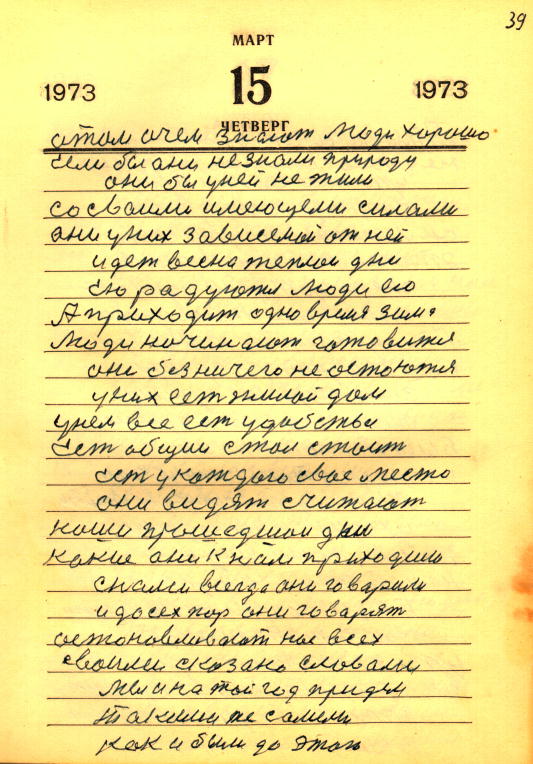 39
МАРТ
1973 15 1973
ЧЕТВЕРГ
отом очем знают люди хорошо
Если бы ани незнали природу
они бы уней не жили
со сваими имеющеми силами
ани уних зависемой от ней
идет весна теплои дни
Ею радуются люди его
А приходит одно время зима
Люди начинают готовится
они без ничего не остоются
уних ест жилой дом
унем все ест удобствы
Ест общий стол стоит
ест у каждого свое место
они видят считают
наши прошедшои дни
какие ани к нам приходили
снами всегда они говарили
и до сех пор они говарят
остоновливают нас всех
своими сказано словами
мы и на той год придем
Такими же самими
как и были до этого